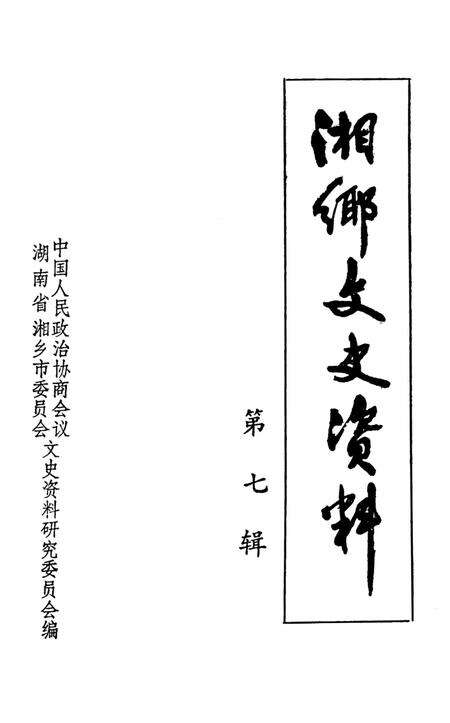 湘鄉文史资料
第七辑
中国人民政治协商会议
湖南省湘乡市委员会
文史资料研究委员会编